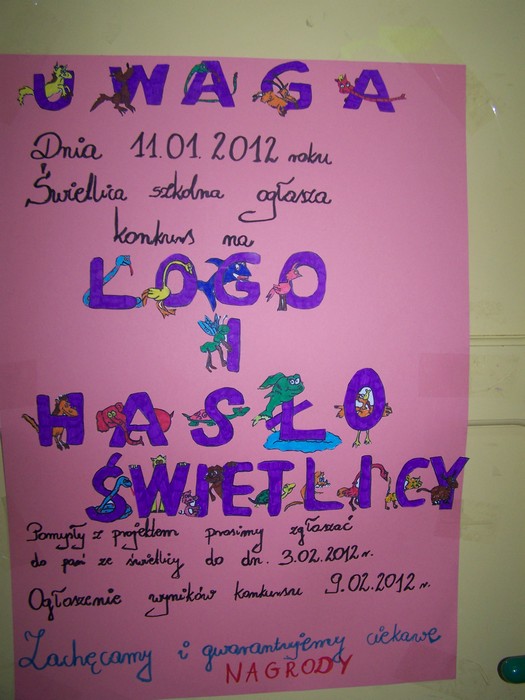 UWAGA
Dnia 11.01.2012 roku
Świetlica szkolna ogłasza
konkurs na
LOGO
I
HASŁO
ŚWIETLICY
Pomysły z projektem prosimy zgłaszać
do pań ze świetlicy do dn. 3.02.2012 r.
Ogłoszenie wyników konkursu 9.02.2012 r.
Zachęcamy i gwarantujemy ciekawe
NAGRODY